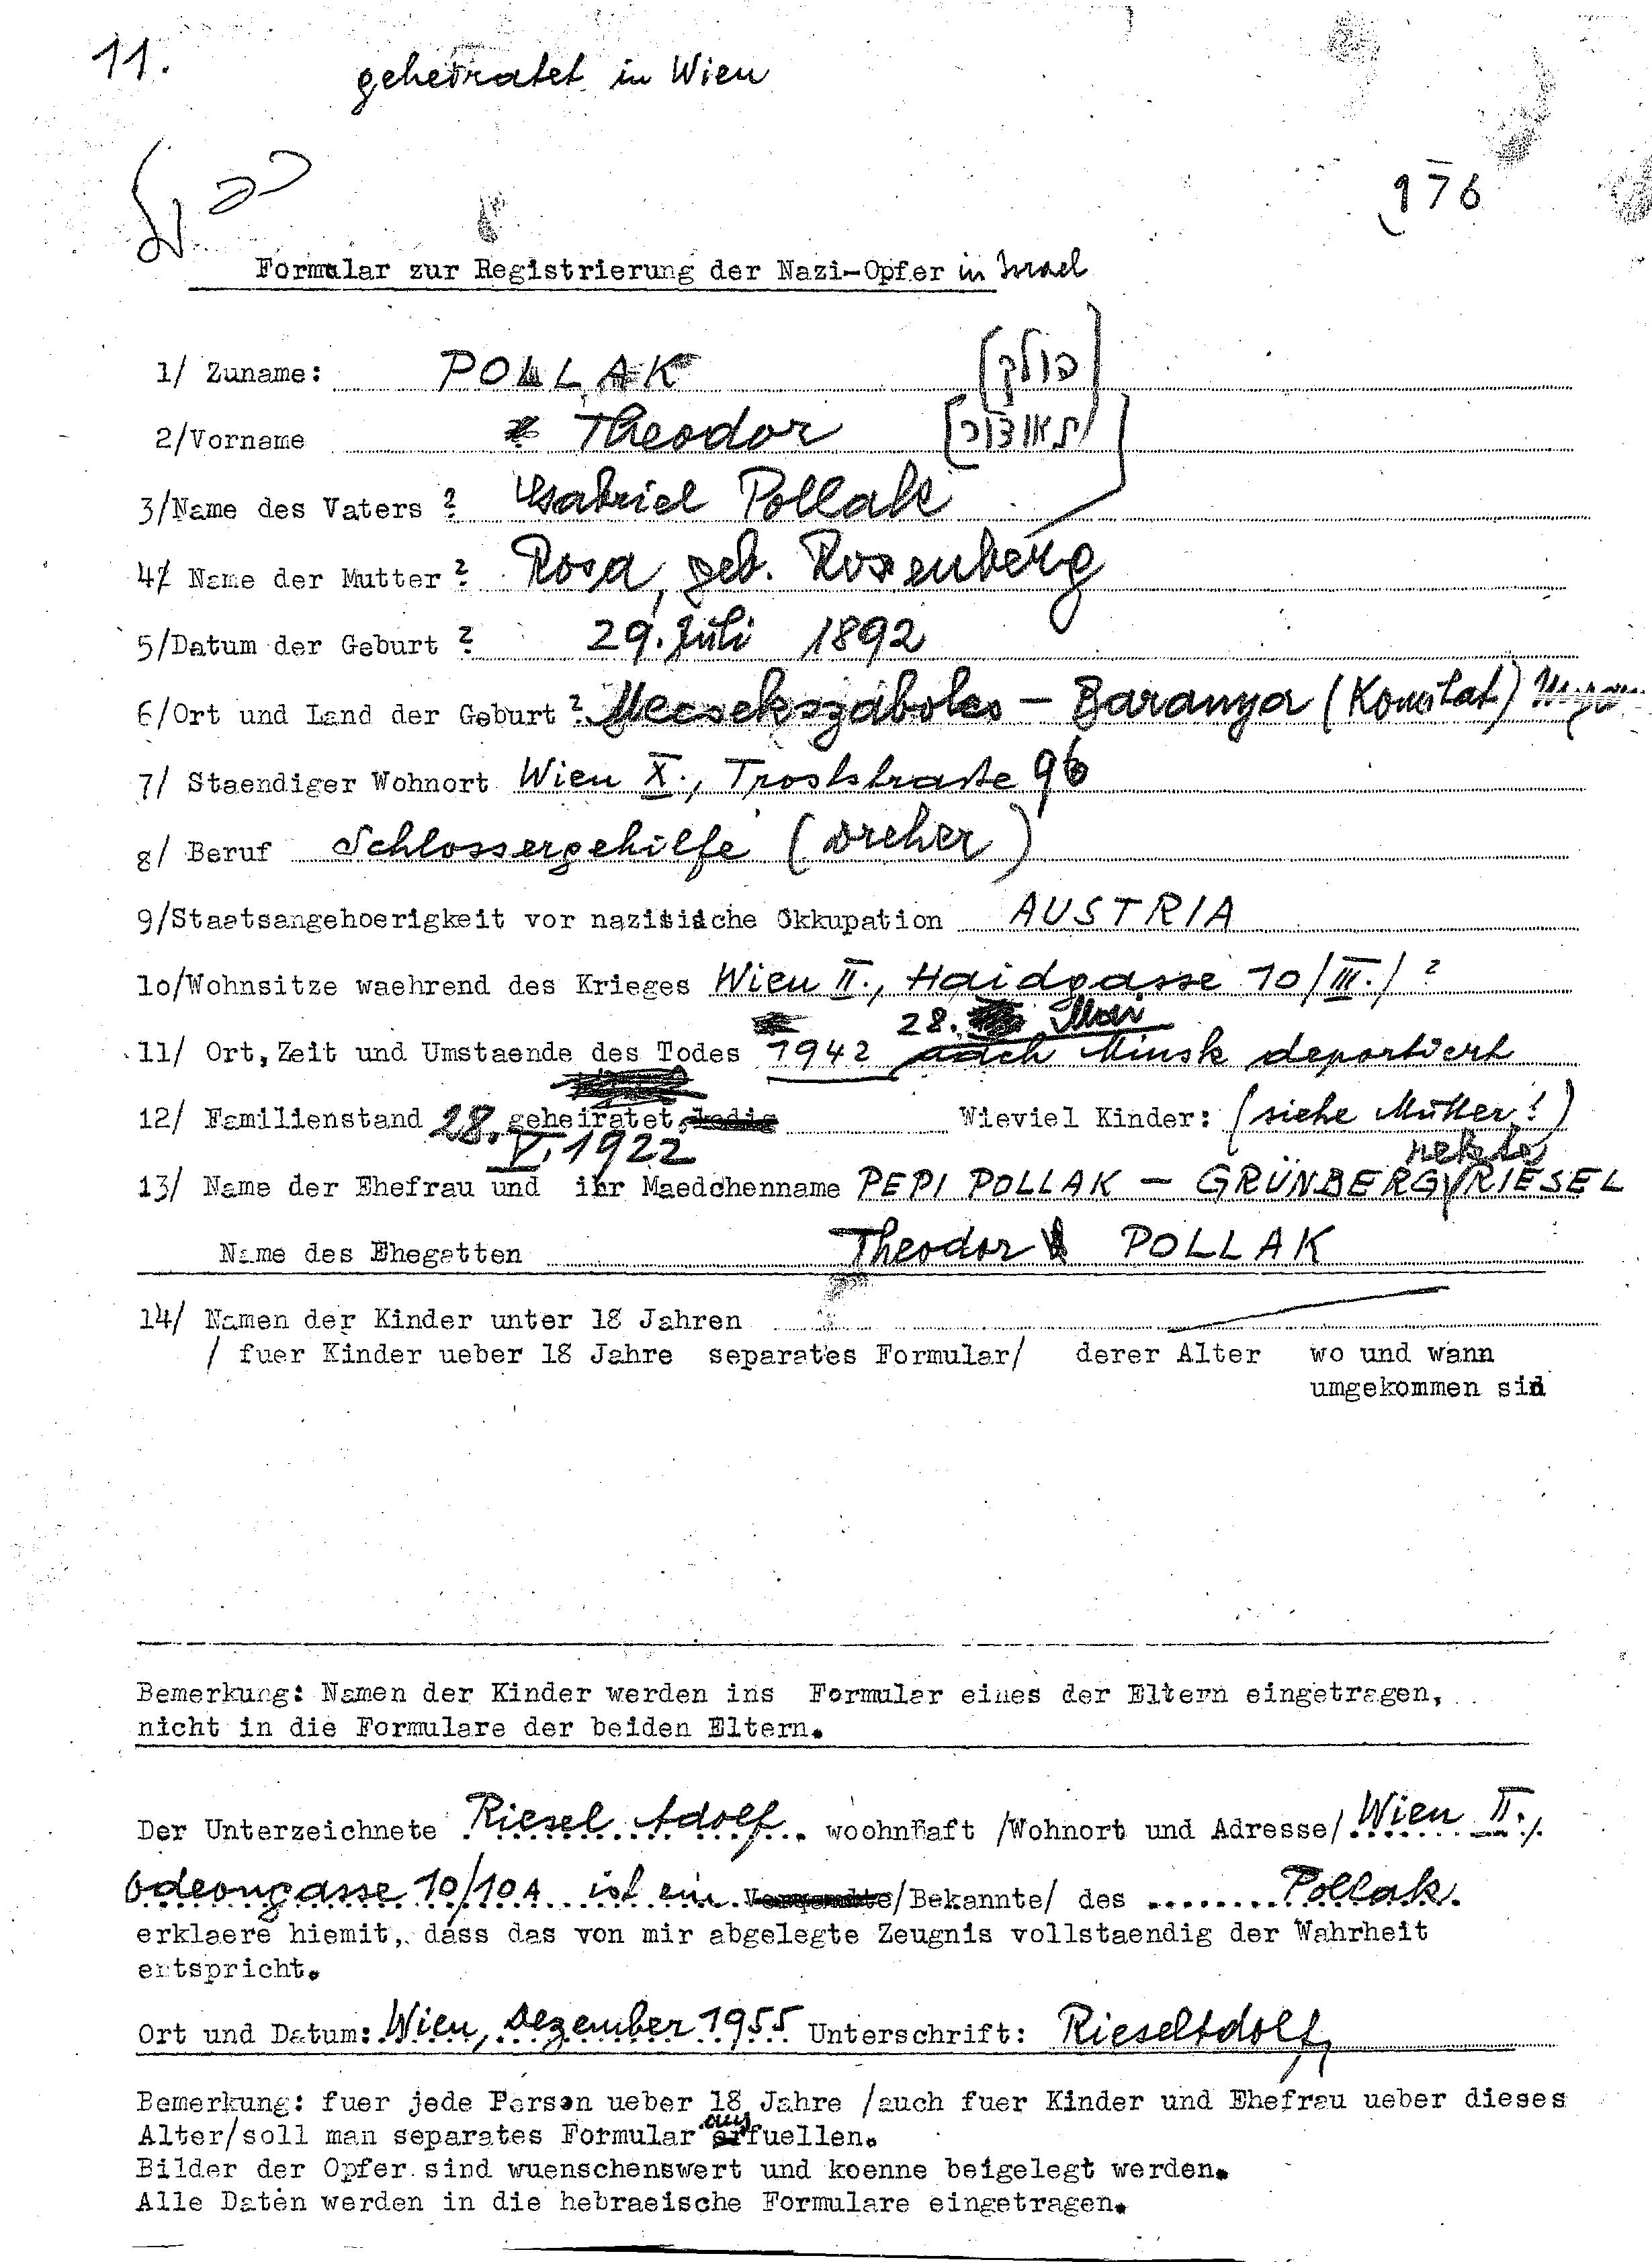 11.
geheiratet in Wien
176
Formular zur Registrierung der Nazi-Opfer in Israel
1/ Zuname: POLLAK [פולק]
2/Vorname Theodor [תאודור]
3/Name des Vaters ? Gabriel Pollak
4/ Name der Mutter ? Rosa, geb. Rosenberg
5/Datum der Geburt ? 29. Juli 1892
6/Ort und Land der Geburt ? Mecsekszabolcs - Baranya (Komitat)
7/ Staendiger Wohnort Wien X., Troststraße 96
8/ Beruf Schlossergehilfe (Dreher)
9/Staatsangehoerigkeit vor nazistische Okkupation AUSTRIA
10/Wohnsitze waehrend des Krieges Wien II., Haidgasse 10/III./?
28. Mai
11/ Ort, Zeit und Umstaende des Todes 1942 nach Minsk deportiert
12/ Familienstand 28. geheiratet, ledig Wieviel Kinder: (siehe Mutter!)
V. 1922 rekte
13/ Name der Ehefrau und ihr Maedchenname PEPI POLLAK - GRÜNBERG RIESEL
Name des Ehegatten Theodor POLLAK
14/ Namen der Kinder unter 18 Jahren
/ fuer Kinder ueber 18 Jahre separates Formular/ derer Alter wo und wann
umgekommen sind
Bemerkung: Namen der Kinder werden ins Formular eines der Eltern eingetragen,
nicht in die Formulare der beiden Eltern.
Der Unterzeichnete Riesel Adolf woohnhaft /Wohnort und Adresse/ Wien II./
Odeongasse 10/10A ist ein Verwandte/Bekannte/ des Pollak.
erklaere hiemit, dass das von mir abgelegte Zeugnis vollstaendig der Wahrheit
entspricht.
Ort und Datum: Wien, Dezember 1955 Unterschrift: Riesel Adolf
Bemerkung: fuer jede Person ueber 18 Jahre /auch fuer Kinder und Ehefrau ueber dieses
Alter/soll man separates Formular ausfuellen.
Bilder der Opfer sind wuenschenswert und koenne beigelegt werden.
Alle Daten werden in die hebraeische Formulare eingetragen.